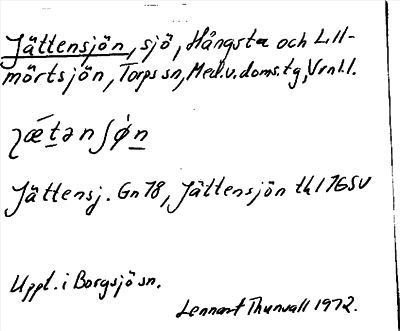 Jättensjön, sjö, Hångsta och Lill-
mörtsjön, Torps sn, Med.v.doms.tg, Vrnl.l.
ʅǽt̲ənʃø̀n̲
Jättensj. Gn 78, Jättensjön tk 17GSV
Uppt. i Borgsjö sn.
Lennart Thunvall 1972.